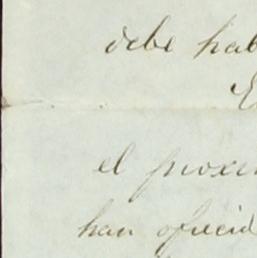 debe hab
el proxim
han ofrecid